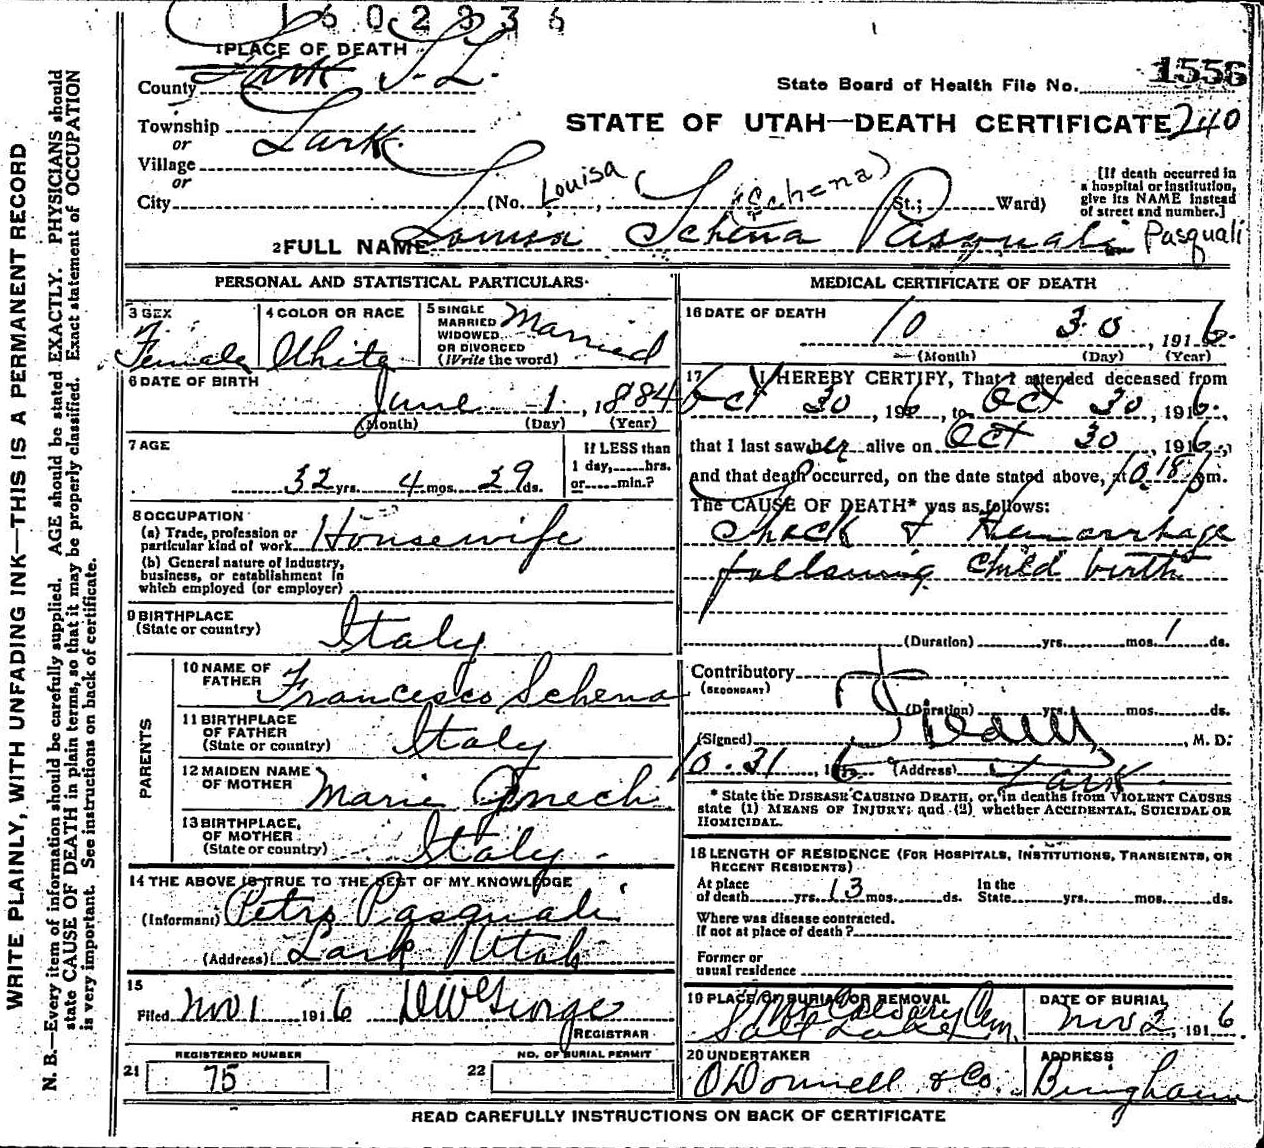 1602336
1 PLACE OF DEATH
County Lark S. L.
State Board of Health File No. 1556
Township
or
Lark
STATE OF UTAH—DEATH CERTIFICATE 240
Village
or
City (No. Louisa (Schena) St.; Ward)
[If death occurred in
a hospital or institution,
give its NAME instead
of street and number.]
2 FULL NAME Louisa Schena Pasquali Pasquali
PERSONAL AND STATISTICAL PARTICULARS
3 SEX
Female
4 COLOR OR RACE
White
5 SINGLE
MARRIED
WIDOWED
OR DIVORCED
(Write the word)
Married
6 DATE OF BIRTH
June 1, 1884
(Month) (Day) (Year)
7 AGE
32 yrs. 4 mos. 29 ds.
If LESS than
1 day, hrs.
or min.?
8 OCCUPATION
(a) Trade, profession or
particular kind of work Housewife
(b) General nature of industry,
business, or establishment in
which employed (or employer)
9 BIRTHPLACE
(State or country) Italy
PARENTS
10 NAME OF
FATHER Francesco Schena
11 BIRTHPLACE
OF FATHER
(State or country) Italy
12 MAIDEN NAME
OF MOTHER Marie
13 BIRTHPLACE
OF MOTHER
(State or country) Italy
14 THE ABOVE IS TRUE TO THE BEST OF MY KNOWLEDGE
(Informant) Petro Pasquali
(Address) Lark Utah
15
Filed Nov 1 1916 DW George
REGISTRAR
REGISTERED NUMBER
21 75
NO. OF BURIAL PERMIT
22
MEDICAL CERTIFICATE OF DEATH
16 DATE OF DEATH
10 30, 1916
(Month) (Day) (Year)
17 I HEREBY CERTIFY, That I attended deceased from
Oct 30, 1916, to Oct 30, 1916,
that I last saw her alive on Oct 30, 1916,
and that death occurred, on the date stated above, at 10.18 p m.
The CAUSE OF DEATH* was as follows:
Shock & Hemorrhage
following child birth
(Duration) yrs. mos. 1 ds.
Contributory
(SECONDARY)
(Duration) yrs. mos. ds.
(Signed) M. D.
10.31 1916 (Address) Lark
* State the DISEASE CAUSING DEATH, or, in deaths from VIOLENT CAUSES
state (1) MEANS OF INJURY; and (2) whether ACCIDENTAL, SUICIDAL OR
HOMICIDAL.
18 LENGTH OF RESIDENCE (FOR HOSPITALS, INSTITUTIONS, TRANSIENTS, OR
RECENT RESIDENTS)
At place
of death yrs. 13 mos. ds.
In the
State yrs. mos. ds.
Where was disease contracted.
if not at place of death?
Former or
usual residence
19 PLACE OF BURIAL OR REMOVAL
Mt Calvary Cem.
Salt Lake
DATE OF BURIAL
Nov 2, 1916.
20 UNDERTAKER
O'Donnell & Co.
ADDRESS
Bingham
READ CAREFULLY INSTRUCTIONS ON BACK OF CERTIFICATE
WRITE PLAINLY, WITH UNFADING INK—THIS IS A PERMANENT RECORD
N. B.—Every item of information should be carefully supplied. AGE should be stated EXACTLY. PHYSICIANS should
state CAUSE OF DEATH in plain terms, so that it may be properly classified. Exact statement of OCCUPATION
is very important. See instructions on back of certificate.